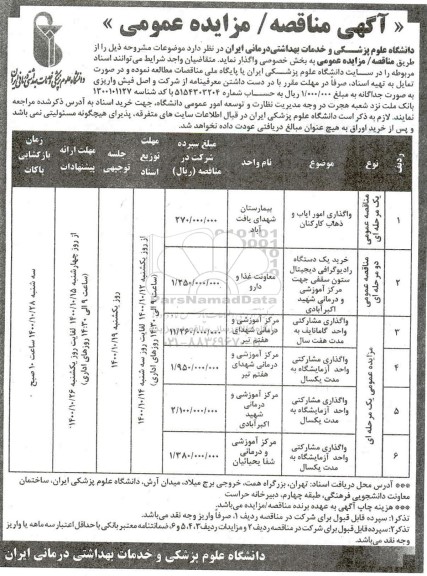 « آگهی مناقصه/ مزایده عمومی »
دانشگاه علوم پزشکی و خدمات بهداشتی درمانی ایران در نظر دارد موضوعات مشروحه ذیل را از
طریق مناقصه/ مزایده عمومی به بخش خصوصی واگذار نماید. متقاضیان واجد شرایط می توانند اسناد
مربوطه را در سایت دانشگاه علوم پزشکی ایران یا پایگاه ملی مناقصات مطالعه نموده و در صورت
تمایل به تهیه اسناد، صرفاً در مهلت مقرر با در دست داشتن معرفینامه از شرکت و اصل فیش واریزی
به صورت جداگانه به مبلغ ۱/۰۰۰/۰۰۰ ریال به حساب شماره ۵۱۵۴۳۰۳۲۰۴ با کد شناسه ۱۳۰۰۱۰۱۱۲۷
بانک ملت نزد شعبه هجرت در وجه مدیریت نظارت و توسعه امور عمومی دانشگاه، جهت خرید اسناد به آدرس ذکرشده مراجعه
نمایند. لازم به ذکر است دانشگاه علوم پزشکی ایران در قبال اطلاعات سایت های متفرقه، پذیرای هیچگونه مسئولیتی نمی باشد
و پس از خرید اوراق به هیچ عنوان مبالغ دریافتی عودت داده نخواهد شد.
ردیف
نوع
موضوع
نام واحد
مبلغ سپرده شرکت در مناقصه (ریال)
مهلت توزیع اسناد
جلسه توجیهی
مهلت ارائه پیشنهادات
زمان بازگشایی پاکات
۱
مناقصه عمومی یک مرحله ای
واگذاری امور ایاب و ذهاب کارکنان
بیمارستان شهدای یافت آباد
۲۷۰/۰۰۰/۰۰۰
۲
مناقصه عمومی دو مرحله ای
خرید یک دستگاه رادیوگرافی دیجیتال ستون سقفی جهت مرکز آموزشی و درمانی شهید اکبرآبادی
معاونت غذا و دارو
۱/۲۵۰/۰۰۰/۰۰۰
مزایده عمومی یک مرحله ای
۳
واگذاری مشارکتی واحد گامانایف به مدت هفت سال
مرکز آموزشی و درمانی شهدای هفتم تیر
۱۱/۲۶۰/۰۰۰/۰۰۰
۴
واگذاری مشارکتی واحد آزمایشگاه به مدت یکسال
مرکز آموزشی و درمانی شهدای هفتم تیر
۱/۹۵۰/۰۰۰/۰۰۰
۵
واگذاری مشارکتی واحد آزمایشگاه به مدت یکسال
مرکز آموزشی و درمانی شهید اکبرآبادی
۲/۱۰۰/۰۰۰/۰۰۰
۶
واگذاری مشارکتی واحد آزمایشگاه به مدت یکسال
مرکز آموزشی و درمانی شفا یحیائیان
۱/۳۸۰/۰۰۰/۰۰۰
از روز یکشنبه ۱۴۰۰/۱۰/۱۲ لغایت روز سه شنبه ۱۴۰۰/۱۰/۱۴ (ساعت ۹ الی ۱۴:۳۰ روزهای اداری)
روز یکشنبه ۱۴۰۰/۱۰/۱۹
از روز چهارشنبه ۱۴۰۰/۱۰/۱۵ لغایت روز یکشنبه ۱۴۰۰/۱۰/۲۶ (ساعت ۹ الی ۱۴:۳۰ روزهای اداری)
سه شنبه ۱۴۰۰/۱۰/۲۸ ساعت ۱۰ صبح
ParsNamadData
*** آدرس محل دریافت اسناد: تهران، بزرگراه همت، خروجی برج میلاد، میدان آرش، دانشگاه علوم پزشکی ایران، ساختمان
معاونت دانشجویی فرهنگی، طبقه چهارم، دبیرخانه حراست
*** هزینه چاپ آگهی به عهده برنده مناقصه/مزایده می باشد.
تذکر۱: سپرده قابل قبول برای شرکت در مناقصه ردیف ۱، صرفاً واریز وجه نقد می باشد.
تذکر۲: سپرده قابل قبول برای شرکت در مناقصه ردیف ۲ و مزایدات ردیف ۳، ۴، ۵ و ۶، ضمانتنامه معتبر بانکی با حداقل اعتبار سه ماهه یا واریز
وجه نقد می باشد.
دانشگاه علوم پزشکی و خدمات بهداشتی درمانی ایران